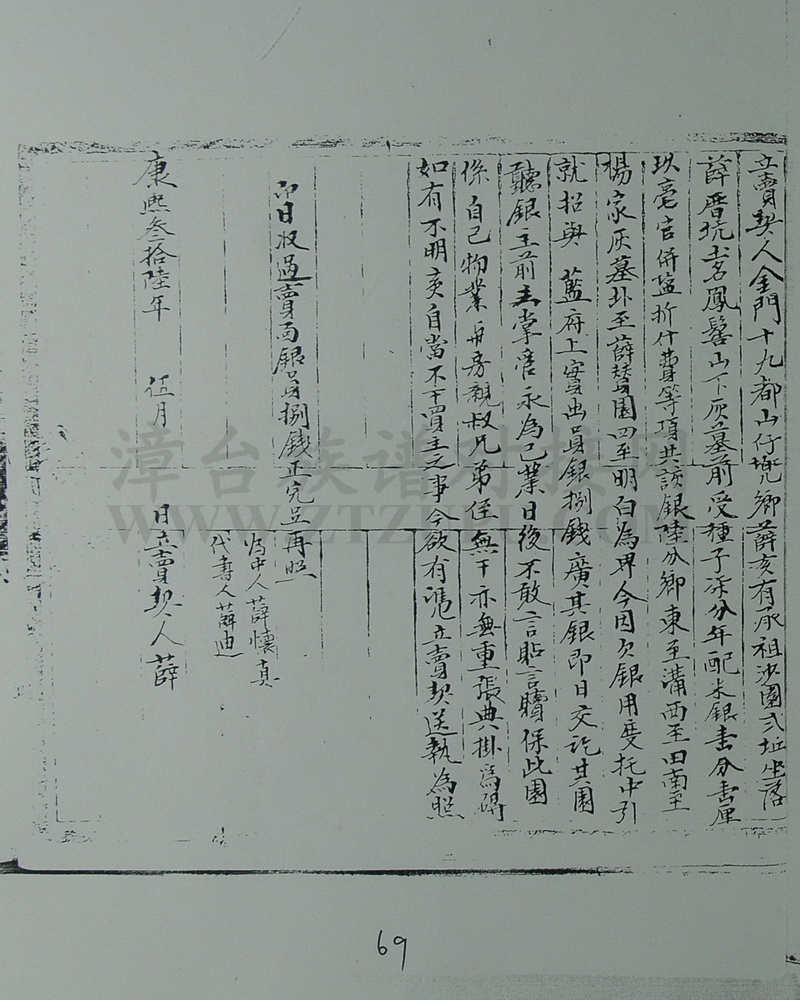 立賣契人金門十九都山仔兜鄉薛亥有承祖沙園弍坵坐落
薛厝坑土名鳳髻山下灰墓前受種子深分年配米銀壹分壹厘
玖毫官併盐折什費等項共該銀陸分鄉東至溝西至田南至
楊家灰墓北至薛賛園四至明白為界今因欠銀用度托中引
就招與 藍府上賣出員銀捌錢廣其銀即日交訖其園
聽銀主前去掌管永為己業日後不敢言貼言贖保此園
係自己物業與房親叔兄弟侄無干亦無重張典掛為碍
如有不明亥自當不干買主之事今欲有憑立賣契送執為照
即日收過賣面銀員捌錢正完足再照
為中人薛懷真
代書人薛迪
康熙叁拾陸年 伍月 日立賣契人薛
漳台族谱对接网
WWW.ZTZPW.COM
69